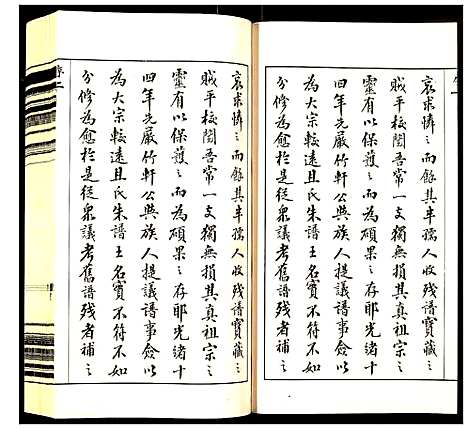 哀求憐〻而餘其半孺人收殘譜寶藏〻
賊平校閱吾常一支獨無損其真祖宗〻
靈有以保護〻而為碩果〻存耶光緒十
四年先嚴竹軒公與族人提議譜事僉以
為大宗較遠且氏朱譜王名實不符不如
分修為愈於是從眾議考舊譜殘者補〻
序二
哀求憐〻而餘其半孺人收殘譜寶藏〻
賊平校閱吾常一支獨無損其真祖宗〻
靈有以保護〻而為碩果〻存耶光緒十
四年先嚴竹軒公與族人提議譜事僉以
為大宗較遠且氏朱譜王名實不符不如
分修為愈於是從眾議考舊譜殘者補〻